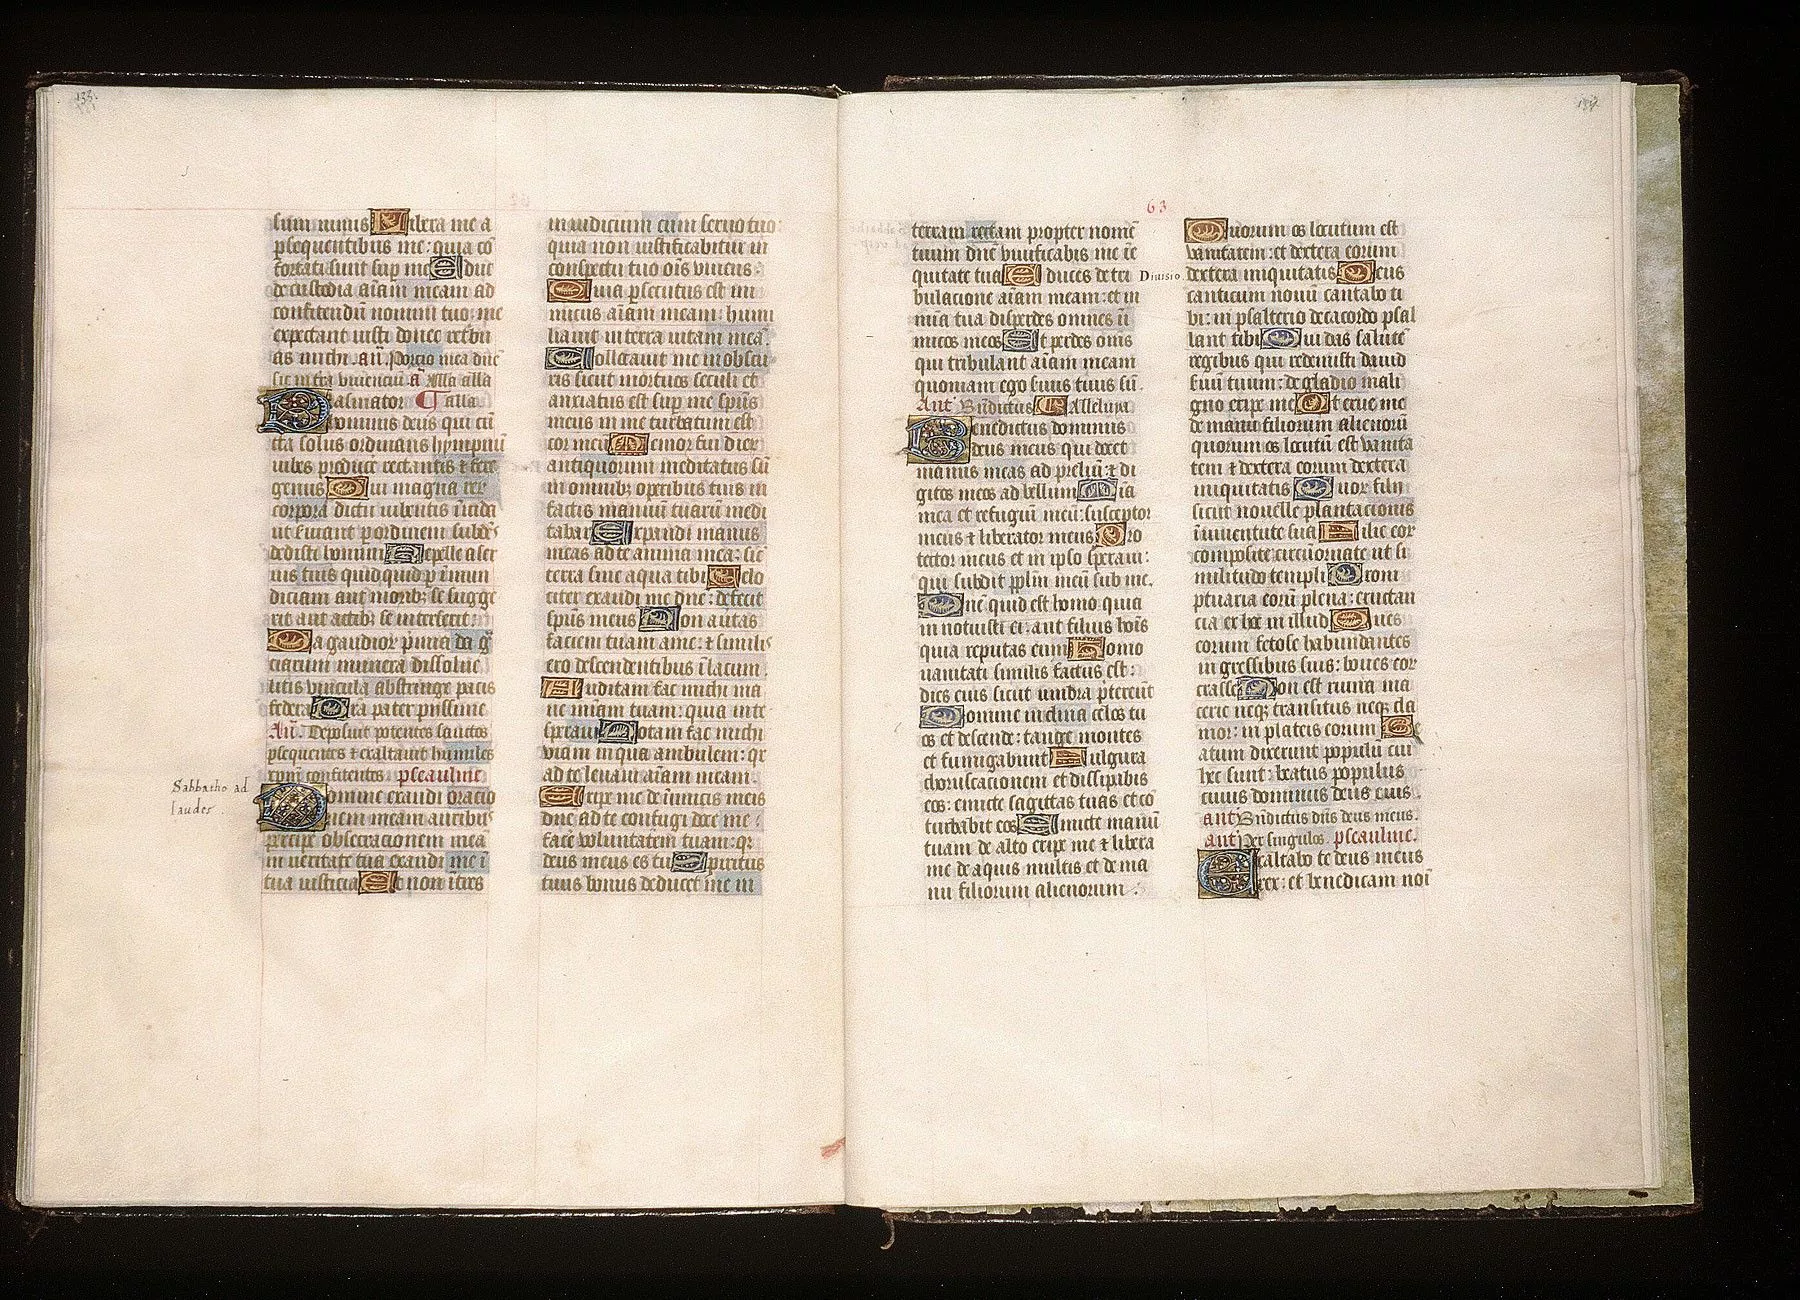 138.
sum nimis Libera me a
psequentibus me: quia cō
fortati sunt sup me Educ
de custodia aīam meam ad
confitendū nomini tuo: me
expectant iusti donec retribu
as michi. añ. Porcio mea dñe
sit in tra viuenciū a Alla alla
Basinator ¶ alla.
Dominus deus qui cū
cta solus ordinans
genus Qui magna rer
corpora dictu iubentis
ut seruirent p ordinem
dedisti homini Repelle a ser
uis tuis quid quid p inmun
diciam aut morib; se sugge
rit aut actib; se interserit:
Da gaudior premia da gr̄
ciarum munera dissolue
litis vincula abstringe pacis
federa Pr̄a pater piissime
Añ. Deposuit potentes sanctos
psequentes & exaltauit humiles
xpm̄ confitentes. pseaulme.
Sabbatho ad
laudes.
Domine exaudi oracio
nem meam auribus
percipe obsecracionem meā
in ueritate tua exaudi me ī
tua iusticia Et non ītres
in iudicium cum seruo tuo:
quia non iustificabitur in
conspectu tuo oīs viuens:
Quia psecutus est ini
micus aīam meam: humi
liauit in terra uitam meā.
Collocauit me in obscu
ris sicut mortuos seculi et
anxiatus est sup me spūs
meus in me turbatum est
cor meū Memor fui dier
antiquorum meditatus sū
in omnib; operibus tuis in
factis manuū tuarū medi
tabar Expandi manus
meas ad te anima mea: sic̄
terra sine aqua tibi Velo
citer exaudi me dñe: defecit
spūs meus Non auertas
faciem tuam a me: & similis
ero descendentibus ī lacum.
Auditam fac michi ma
ne m̄iam tuam: quia in te
speraui Notam fac michi
viam in qua ambulem: qr
ad te leuaui aīam meam.
Eripe me de īnimicis meis
dñe ad te confugi doce me:
facē voluntatem tuam: qr
deus meus es tu Spiritus
tuus bonus deducet me in
63
139.
terram rectam propter nomē
tuum dñe viuificabis me ī e
quitate tua Educes de tri
bulacione aīam meam: et in
m̄ia tua disperdes omnes ī
micos meos Et perdes om̄s
qui tribulant aīam meam
quoniam ego suus tuus sū.
Ant Bn̄dictus Alleluya
Benedictus dominus
deus meus qui docet
manus meas ad preliū: & di
gitos meos ad bellum M̄ia
mea et refugiū meū: susceptor
meus & liberator meus Pro
tector meus et in ipso speraui:
qui subdit pplm̄ meū sub me.
Dñe quid est homo quia
innotuisti ei: aut filius hoīs
quia reputas eum Homo
vanitati similis factus est:
dies eius sicut umbra ptereūt
Domine inclina celos tu
os et descende: tange montes
et fumigabunt Fulgura
choruscacionem et dissipabis
eos: emitte sagittas tuas et cō
turbabis eos Emitte manū
tuam de alto eripe me & libera
me de aquis multis et de ma
nu filiorum alienorum:
Diuisio
Quorum os locutum est
vanitatem: et dextera eorum
dextera iniquitatis Deus
canticum nouū cantabo ti
bi: in psalterio decacordo psal
lam tibi Qui das salutē
regibus qui redemisti dauid
seruū tuum: de gladio mali
gno eripe me Et erue me
de manu filiorum alienorū
quorum os locutū est vanita
tem & dextera eorum dextera
iniquitatis Quor filii
sicut nouelle plantacionis
ī iuuentute sua Filie eor
composite: circūornate ut si
militudo templi Prom
ptuaria eorū plena: eructan
cia ex hoc in illud Oues
eorum fetose habundantes
in gressibus suis: boues eor
crasse Non est ruina ma
cerie neq; transitus neq; cla
mor: in plateis eorum Be
atum dixerunt populū cui
hec sunt: beatus populus
cuius dominus deus eius.
ant Bn̄dictus dñs deus meus.
ant Per singulos. pseaulme.
Exaltabo te deus meus
rex: et benedicam noī